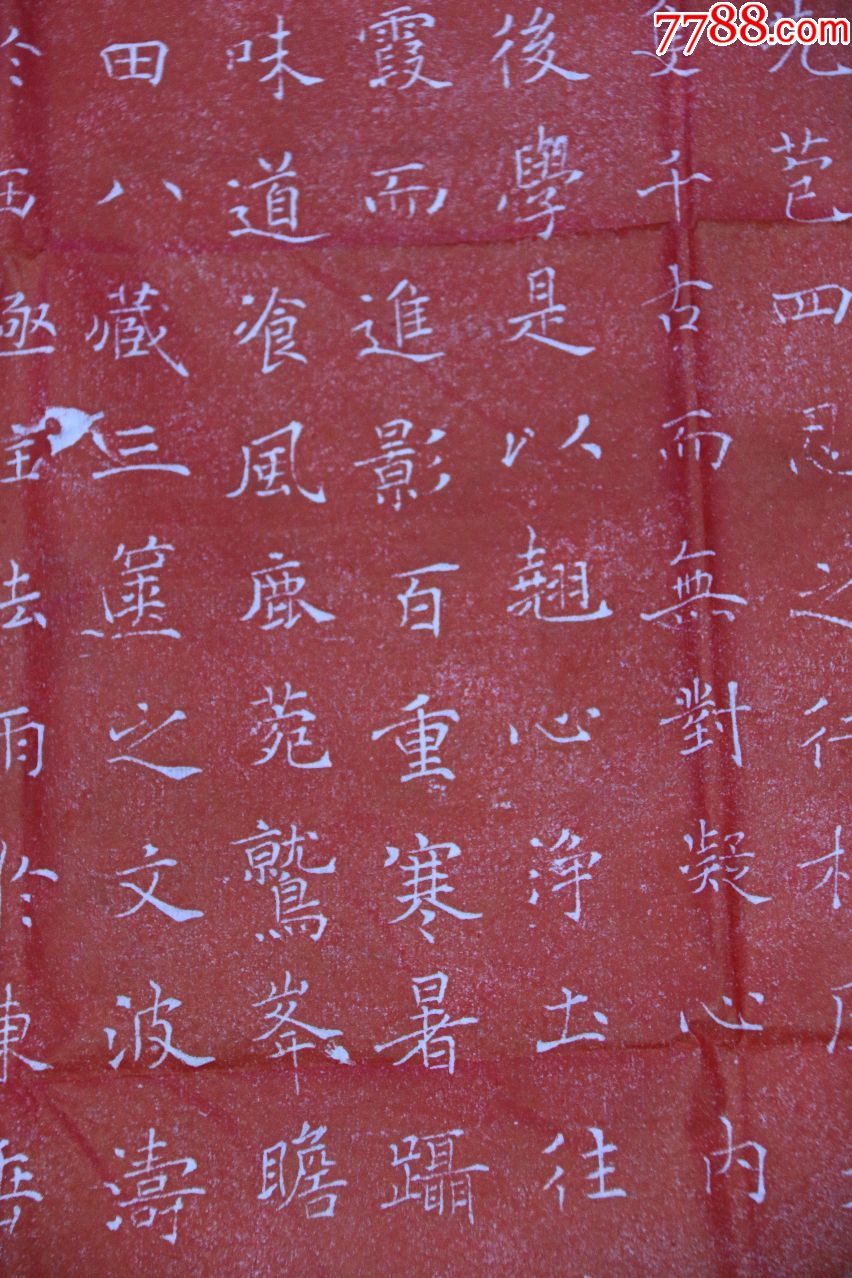 7788.com
苞四忍之行
隻千古而無對凝心內
後學是以翹心淨土往
霞而進影百重寒暑躡
味道飡風鹿菀鷲峯瞻
田八藏三篋之文波濤
於西極法雨於東垂